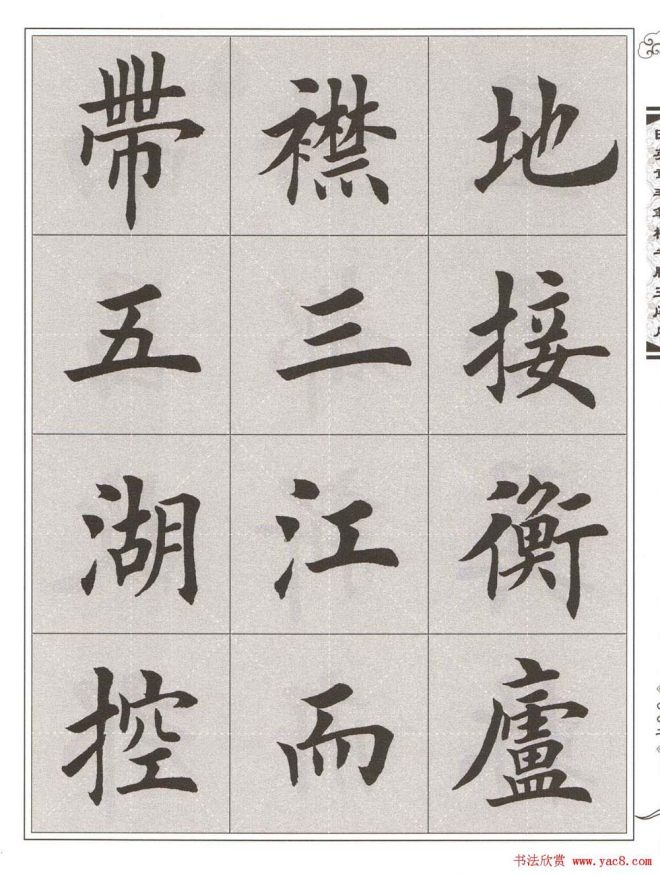 地接衡廬
襟三江而
帶五湖控
书法欣赏 www.yac8.com